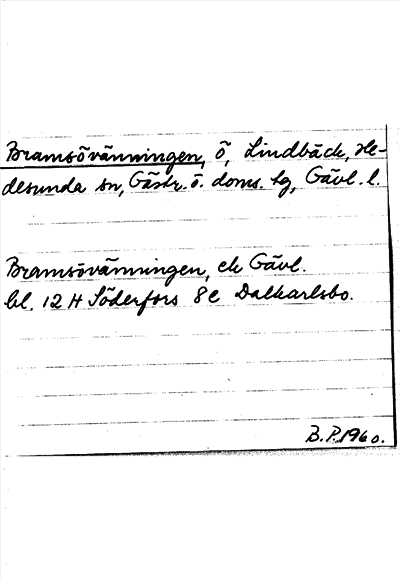 Bramsövänningen, ö, Lindbäck, He-
desunda sn, Gästr. ö. doms. tg, Gävl. l.
Bramsövänningen, ek Gävl.
bl. 12 H Söderfors 8e Dalkarlsbo.
B. P. 1960.